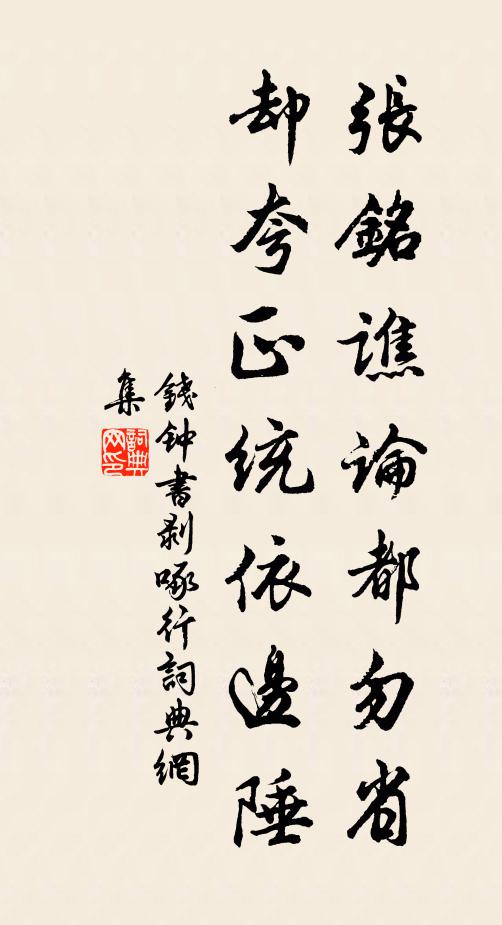 張銘譙論都勿省
却夸正統依邊陲
錢钟書剥啄行詞典網
集
詞典网印